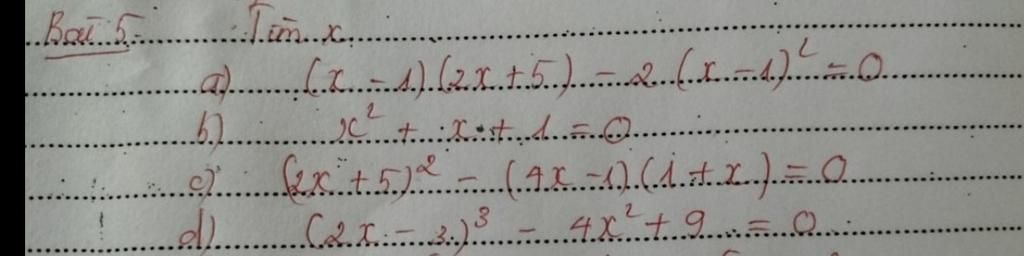 Bài 5. Tìm x.
a) (x - 1)(2x + 5) - 2(x - 1)² = 0
b) x² + x + 1 = 0
c) (2x + 5)² - (4x - 1)(1 + x) = 0
d) (2x - 3)³ - 4x² + 9 = 0